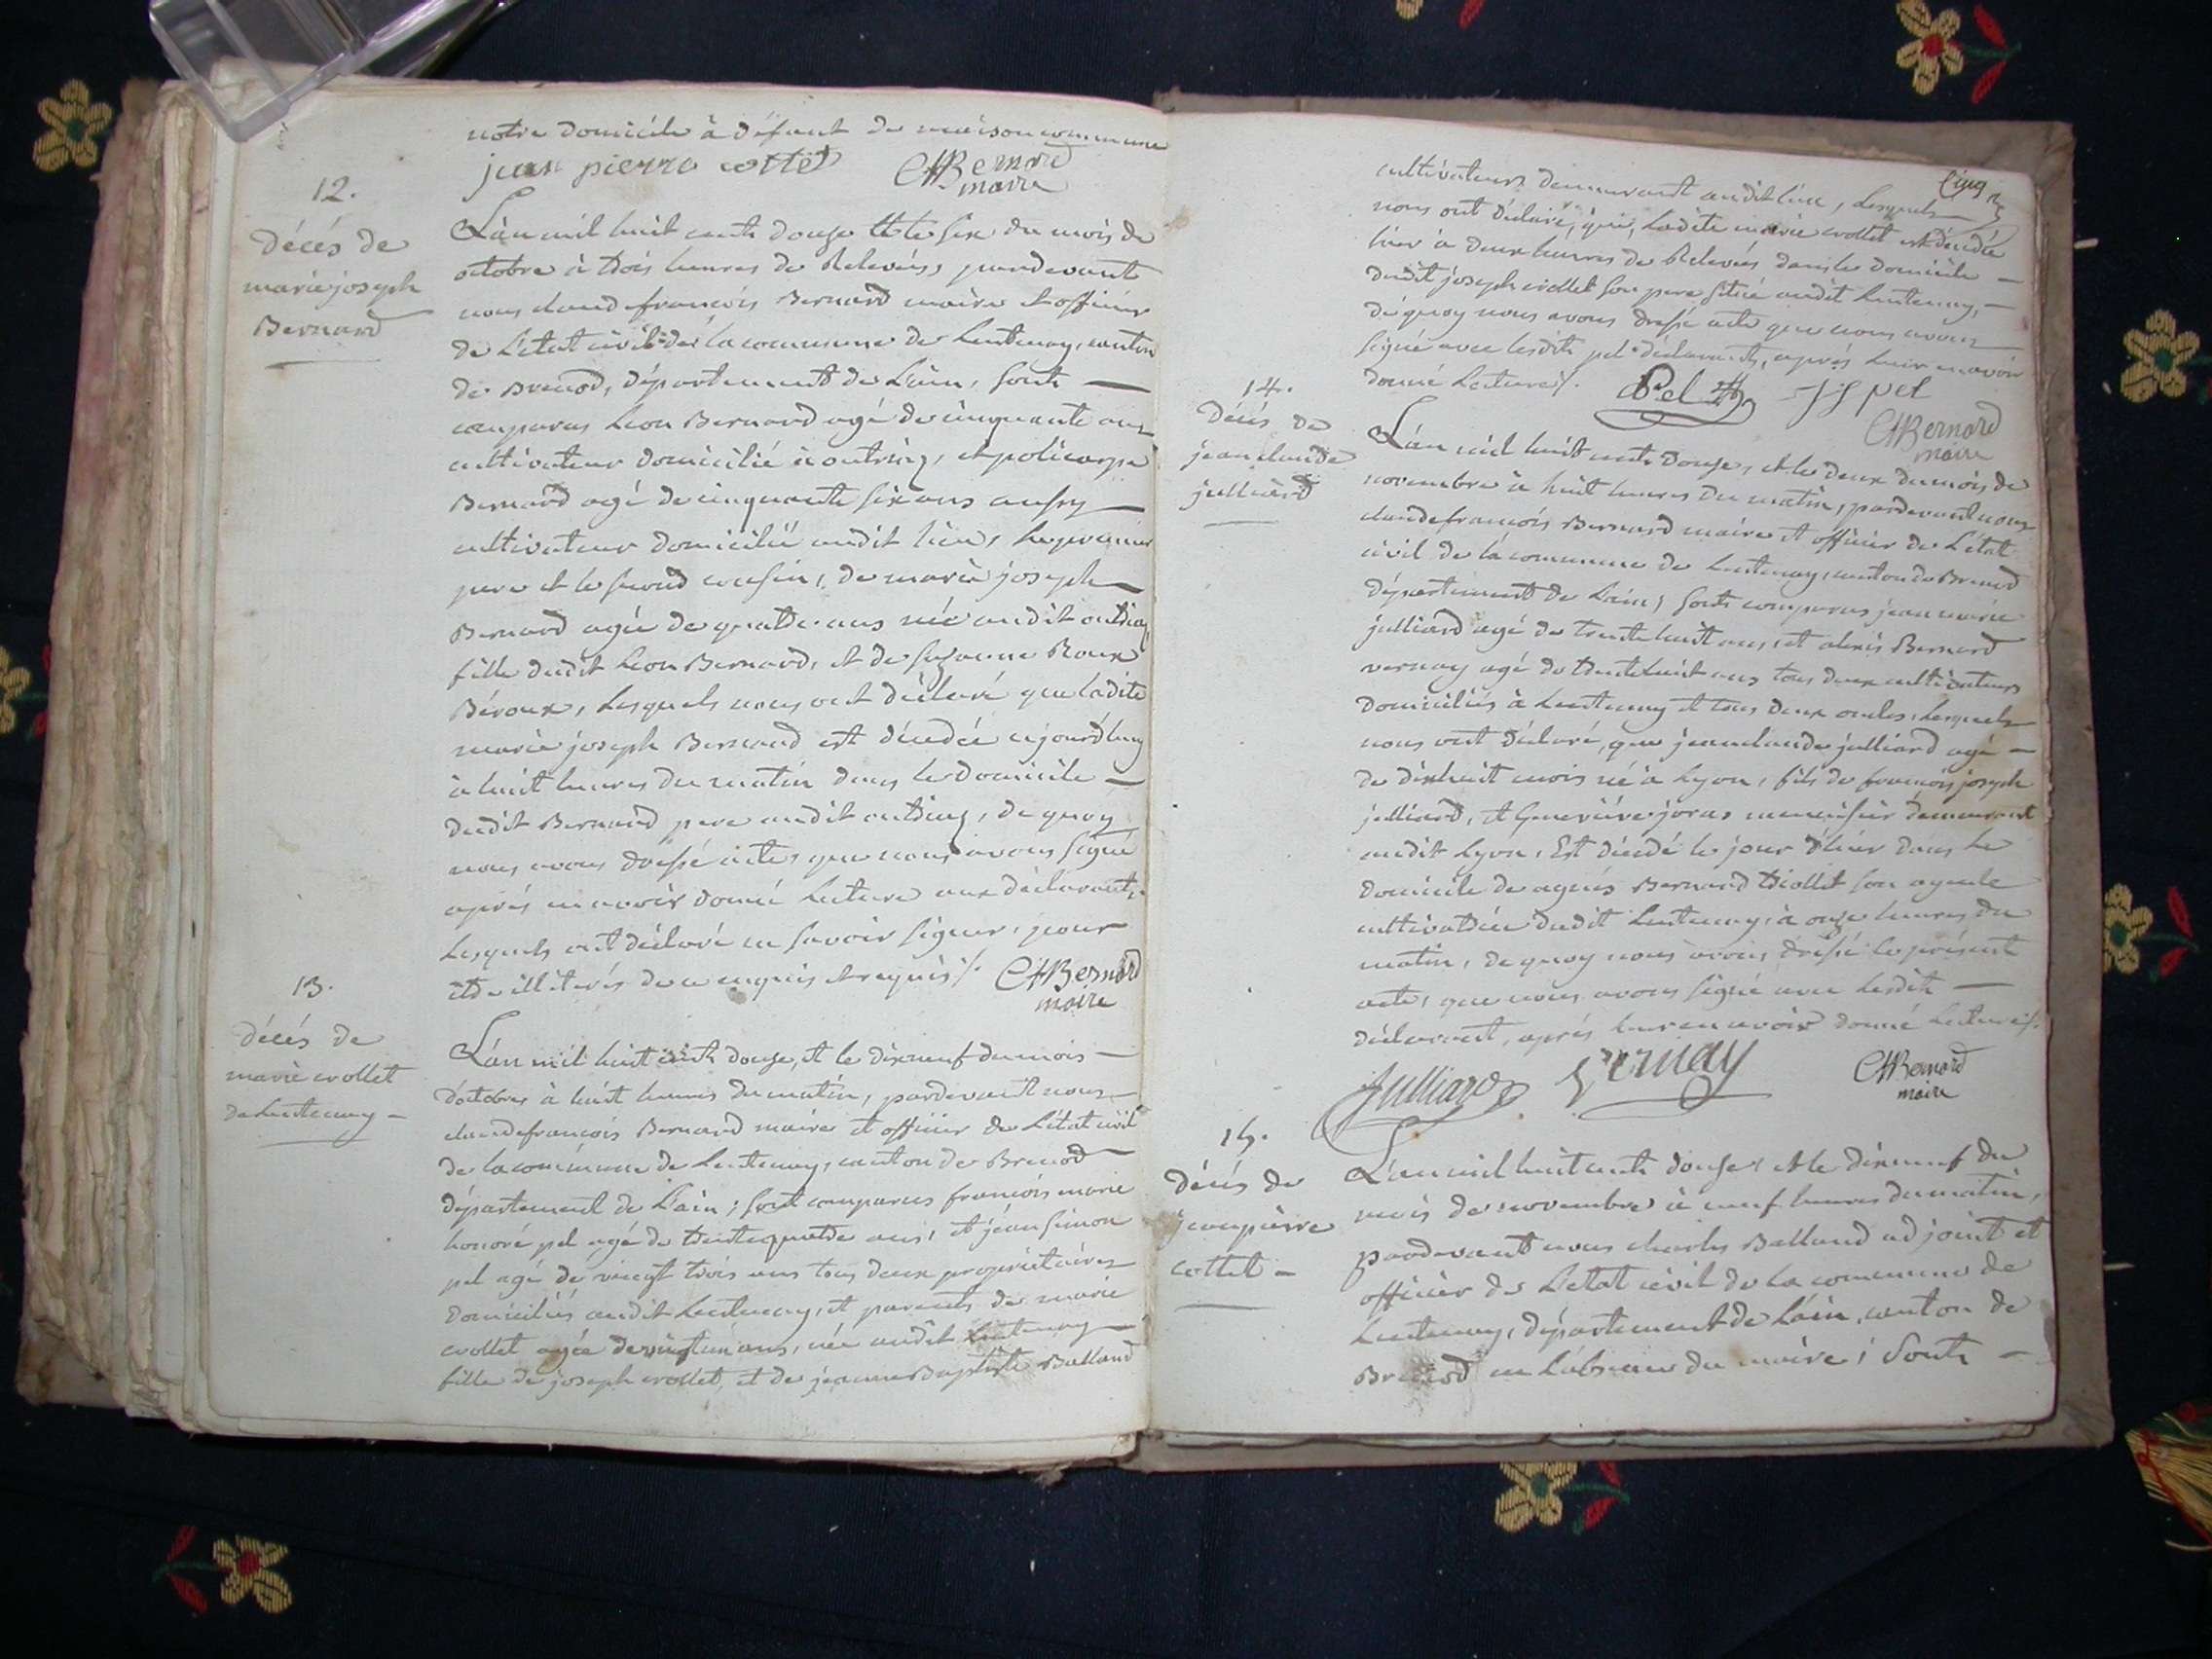 notre domicile à défaut de maison commune
jean pierre cottet CfBernard
maire
12.
décés de
marie joseph
Bernard
L'an mil huit cents douze et le six du mois de
octobre à trois heures de Relevés, pardevant
nous claud françois Bernard maire et officier
de L'état civil de la commune de Lentenay, canton
de Brenod, département de L'ain, sonts
comparus Leon Bernard agé de cinquante ans
cultivateur domicilié à outriaz, et policarpe
Bernard agé de cinquante six ans aussy
cultivateur domicilié audit lieu, le premier
pere et le second cousin, de marie joseph
Bernard agée de quatre ans née audit outriaz,
fille dudit Leon Bernard, et de suzanne Roux
Béroux, Lesquels nous ont déclaré que ladite
marie joseph Bernard est décedée aujourd'huy
à huit heures du matin dans le domicile
dudit Bernard pere audit outriaz, de quoy
nous avons dressé acte, que nous avons signé
après en avoir donné Lecture aux déclarants,
Lesquels ont déclaré ne savoir signer, pour
être illiterés de ce enquis et requis ./. CfBernard
maire
13.
décés de
marie crollet
de Lentenay
L'an mil huit cents douze, et le dixneuf du mois
d'octobre à huit heures du matin, pardevant nous
claudefrançois Bernard maire et officier de L'état civil
de la commune de Lentenay, canton de Brenod
département de L'ain; sont comparus françois marie
honoré pel agé de trentequatre ans, et jean simon
pel agé de vingt trois ans tous deux propriétaires
domiciliés audit Lentenay, et parents de marie
crollet agée de ans, née audit Lentenay
fille de joseph crollet, et de jeanne Baptiste Balland
Cinq
cultivateurs demeurant audit lieu, Lesquels
nous ont déclaré, que, Ladite marie crollet est décedée
hier à deux heures de Relevés dans le domicile
dudit joseph crollet son pere situé audit Lentenay,
de quoy nous avons dressé acte que nous avons
signé avec lesdits pel déclarants, après leur en avoir
donné Lecture ./. Pel jspel
CfBernard
maire
14.
décés de
jean claude
julliard
L'an mil huit cents douze, et le deux du mois de
novembre à huit heures du matin, pardevant nous
claudefrançois Bernard maire et officier de L'état
civil de la commune de Lentenay, canton de Brenod
département de L'ain; sonts comparus jean marie
julliard agé de trentehuit ans, et alexis Bernard
vernay agé de trentehuit ans tous deux cultivateurs
domiciliés à Lentenay et tous deux oncles, Lesquels
nous ont déclaré, que jeanclaude julliard agé
de dixhuit mois né à Lyon, fils de françois joseph
julliard, et Genevieve joras menuisier demeurant
audit Lyon, Est décedé le jour d'hier dans le
domicile de agnés Bernard triollet son ayeule
cultivatrice dudit Lentenay, à onze heures du
matin, de quoy nous avons dressé le présent
acte, que nous avons signé avec Lesdits
déclarant, après leur en avoir donné Lecture ./.
Julliard Vernay CfBernard
maire
15.
décés de
jeanpierre
cottet
L'an mil huit cents douze, et le dixneuf du
mois de novembre à neuf heures du matin,
pardevant nous charles Balland adjoint et
officier de L'etat civil de la commune de
Lentenay, département de L'ain, canton de
Brenod en L'absence du maire; Sonts